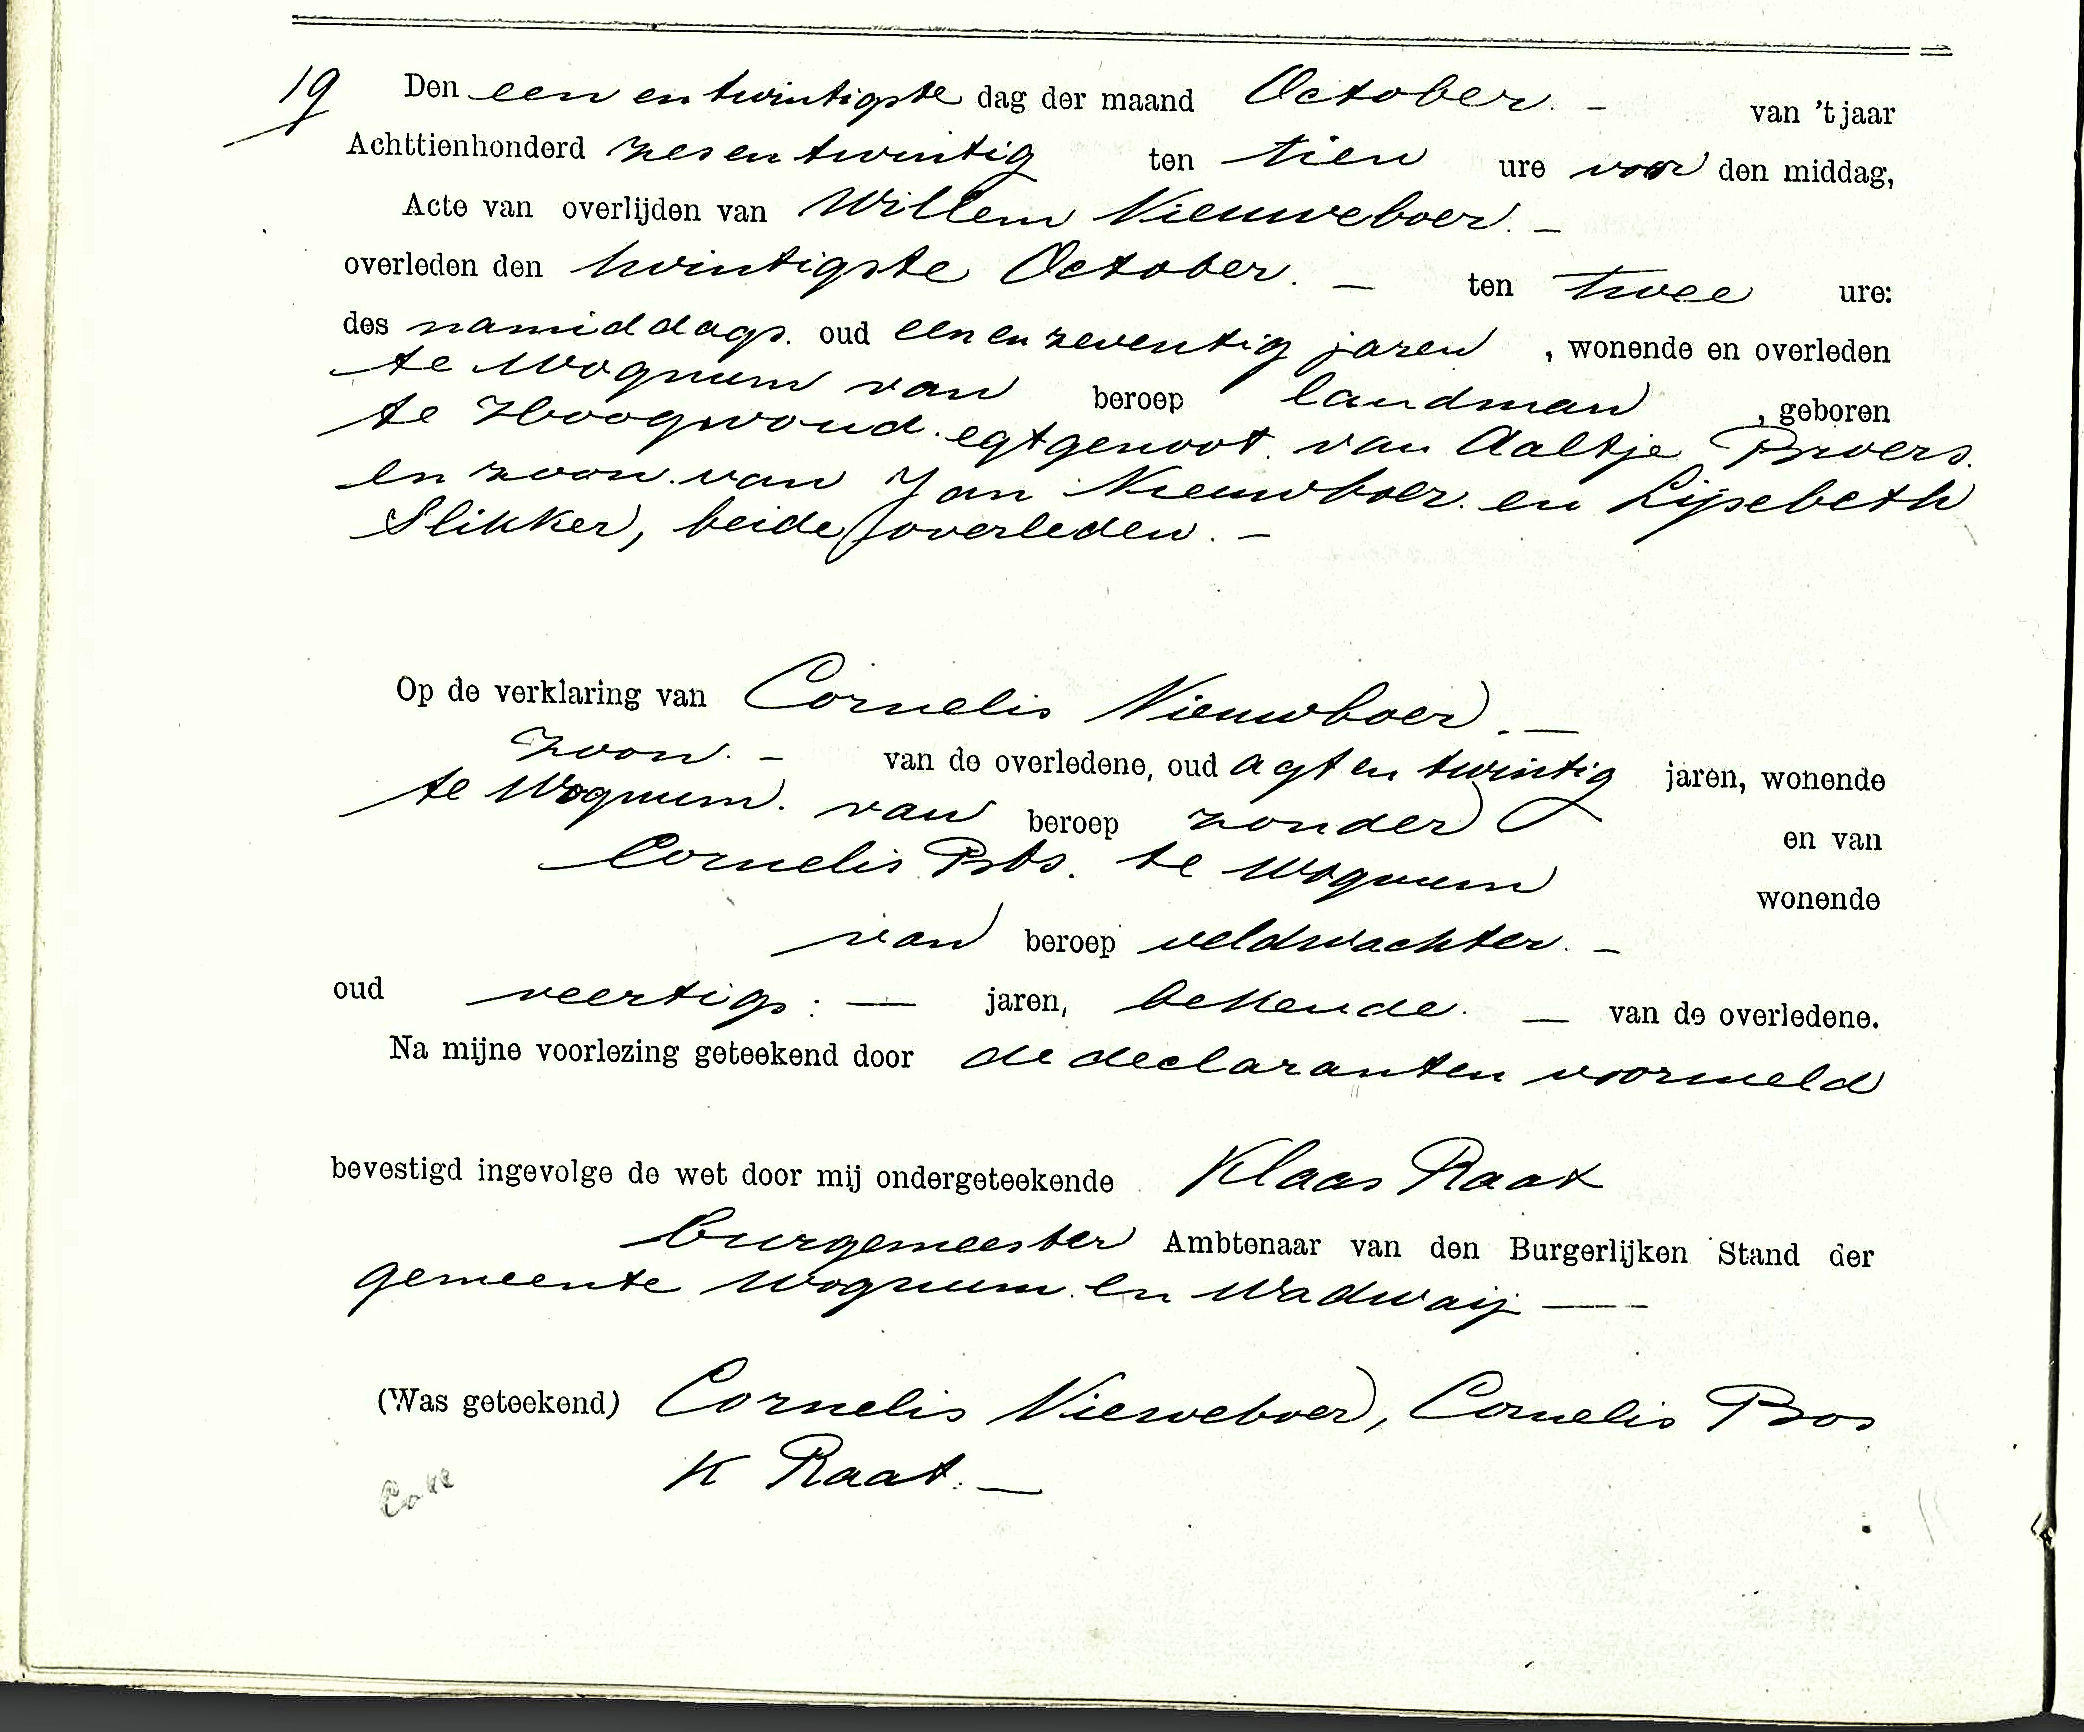 19 Den een en twintigste dag der maand October. - van 't jaar
Achttienhonderd zes en twintig ten tien ure voor den middag,
Acte van overlijden van Willem Nieuweboer. -
overleden den twintigste October. - ten twee ure:
des namiddags. oud een en zeventig jaren, wonende en overleden
te Wognum van beroep landman, geboren
te Hoogwoud. egtgenoot van Aaltje Broers.
en zoon van Jan Nieuwboer. en Lijsebeth
Slikker, beide overleden. -
Op de verklaring van Cornelis Nieuwboer. -
zoon. - van de overledene, oud agt en twintig jaren, wonende
te Wognum. van beroep zonder en van
Cornelis Bos. te Wognum wonende
van beroep veldwachter. -
oud veertig: - jaren, bekende. - van de overledene.
Na mijne voorlezing geteekend door de declaranten voormeld
bevestigd ingevolge de wet door mij ondergeteekende Klaas Raat
burgemeester Ambtenaar van den Burgerlijken Stand der
gemeente Wognum en Wadwaij -
(Was geteekend) Cornelis Nieweboer, Cornelis Bos
K Raat. -